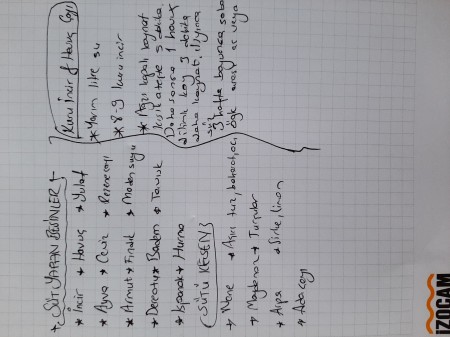 + SÜT YAPAN BESİNLER +
* İncir * Havuç * Yulaf
* Ayva * Ceviz * Rezene çayı
* Armut * Fındık * Maden suyu
* Dereotu * Badem * Tavuk
* Ispanak * Hurma
{SÜTÜ KESEN}
* Nane * Aşırı tuz, baharat, acı
* Maydanoz * Turşular
* Arpa * Sirke, limon
* Adaçayı
Kuru incir & Havuç Çayı
* Yarım litre su
* 8-9 kuru incir
* Ağzı kapalı kaynat
kısık ateşte 5 dakika.
Daha sonra 1 havuç
dilimle koy 3 dakika
daha kaynat. ılıyınca
süz
3 hafta boyunca sabah
öğle arası aç veya
İZOCAM